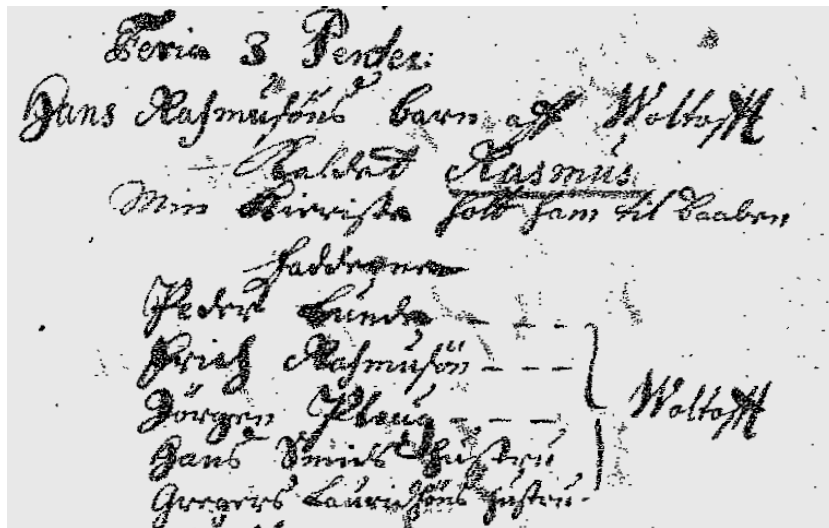 Feria 3 Pentec:
Hans Rasmusöns barn aff Woltofft
Kaldet Rasmus
Min Kieriste holt ham til Daaben
Fadderne
Peder Lunde - - - -
Erich Rasmusön - - - -
Jörgen Ploug - - - -
Woltofft
Hans Smids Hustru
Gregers Lauridsöns Hustru